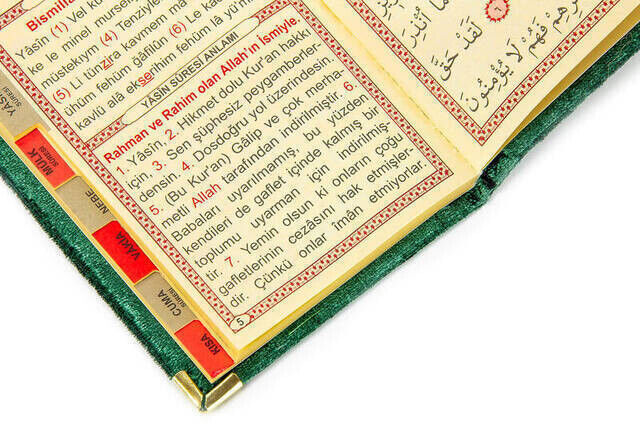 Bismill
Yâsîn (1) Vel kur
ke le minel mursel
müstekıym (4) Tenziyle
(5) Li tünzira kavmem mâ
ühüm fehüm ğâfilûn (6) Le kad
kavlü alâ ekserihim fehüm lâ yü'mi
YÂSÎN SÛRESİ ANLAMI
Rahman ve Rahim olan Allah'ın ismiyle.
1. Yâsîn, 2. Hikmet dolu Kur'an hakkı
için, 3. Sen şüphesiz peygamberler-
densin. 4. Dosdoğru yol üzerindesin.
5. (Bu Kur'an) Gâlip ve çok merha-
metli Allah tarafından indirilmiştir. 6.
Babaları uyarılmamış, bu yüzden
kendileri de gaflet içinde kalmış bir
toplumu uyarman için indirilmiş-
tir. 7. Yemin olsun ki onların çoğu
gafletlerinin cezâsını hak etmişler-
dir. Çünkü onlar îmân etmiyorlar.
5
YÂSÎN
SÛRESİ
MÜLK
SÛRESİ
NEBE
VAKIA
CUMA
SÛRESİ
KISA
لَقَدْ حَقَّ
فَهُمْ لَا يُؤْمِنُونَ